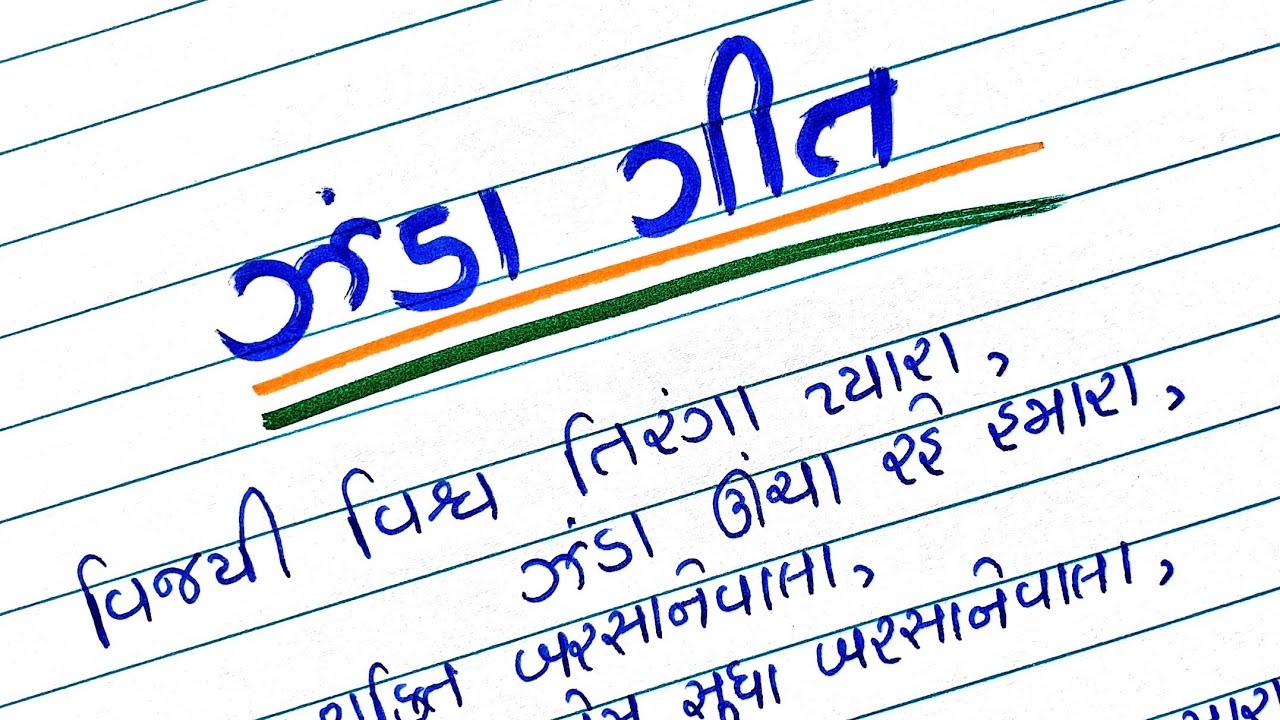 ઝંડા ગીત
વિજયી વિશ્વ તિરંગા પ્યારા,
ઝંડા ઊંચા રહે હમારા,
શક્તિ બરસાનેવાલા,
પ્રેમ સુધા બરસાનેવાલા,